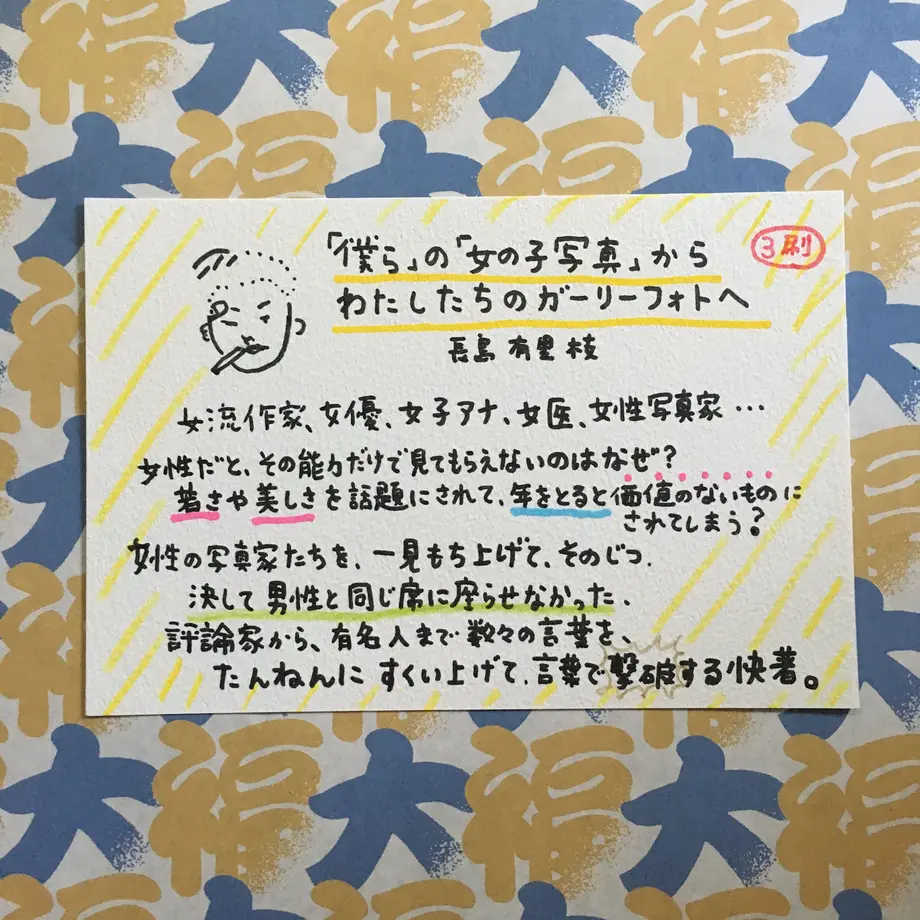 「僕ら」の「女の子写真」から
わたしたちのガーリーフォトへ
3刷
長島有里枝
女流作家、女優、女子アナ、女医、女性写真家…
女性だと、その能力だけで見てもらえないのはなぜ?
若さや美しさを話題にされて、年をとると価値のないものに
されてしまう?
女性の写真家たちを、一見もち上げて、そのじつ、
決して男性と同じ席に座らせなかった、
評論家から、有名人まで数々の言葉を、
たんねんにすくい上げて、言葉で撃破する快著。
大福 大福 大福